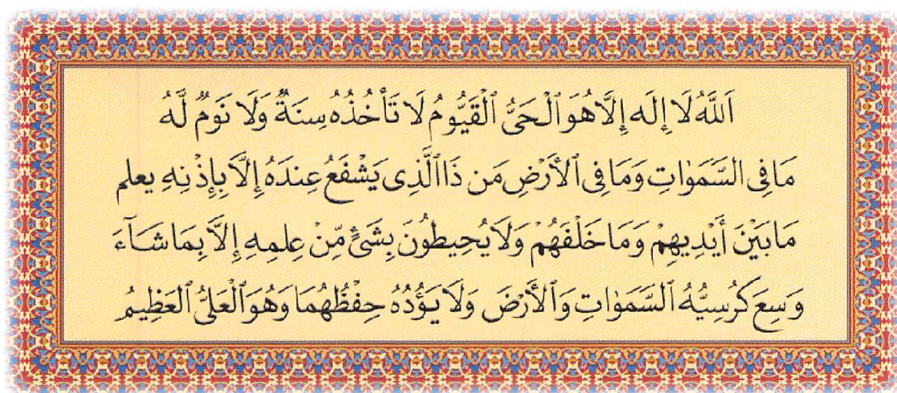 اَللَّهُ لَا إِلَهَ إِلَّا هُوَ الْحَيُّ الْقَيُّومُ لَا تَأْخُذُهُ سِنَةٌ وَلَا نَوْمٌ لَّهُ
مَا فِي السَّمَوَاتِ وَمَا فِي الْأَرْضِ مَن ذَا الَّذِي يَشْفَعُ عِندَهُ إِلَّا بِإِذْنِهِ يعلم
مَا بَيْنَ أَيْدِيهِمْ وَمَا خَلْفَهُمْ وَلَا يُحِيطُونَ بِشَيْءٍ مِّنْ عِلمِهِ إِلَّا بِمَا شَاءَ
وَسِعَ كُرْسِيُّهُ السَّمَوَاتِ وَالْأَرْضَ وَلَا يَؤُدُهُ حِفْظُهُمَا وَهُوَ الْعَلِيُّ الْعَظِيمُ